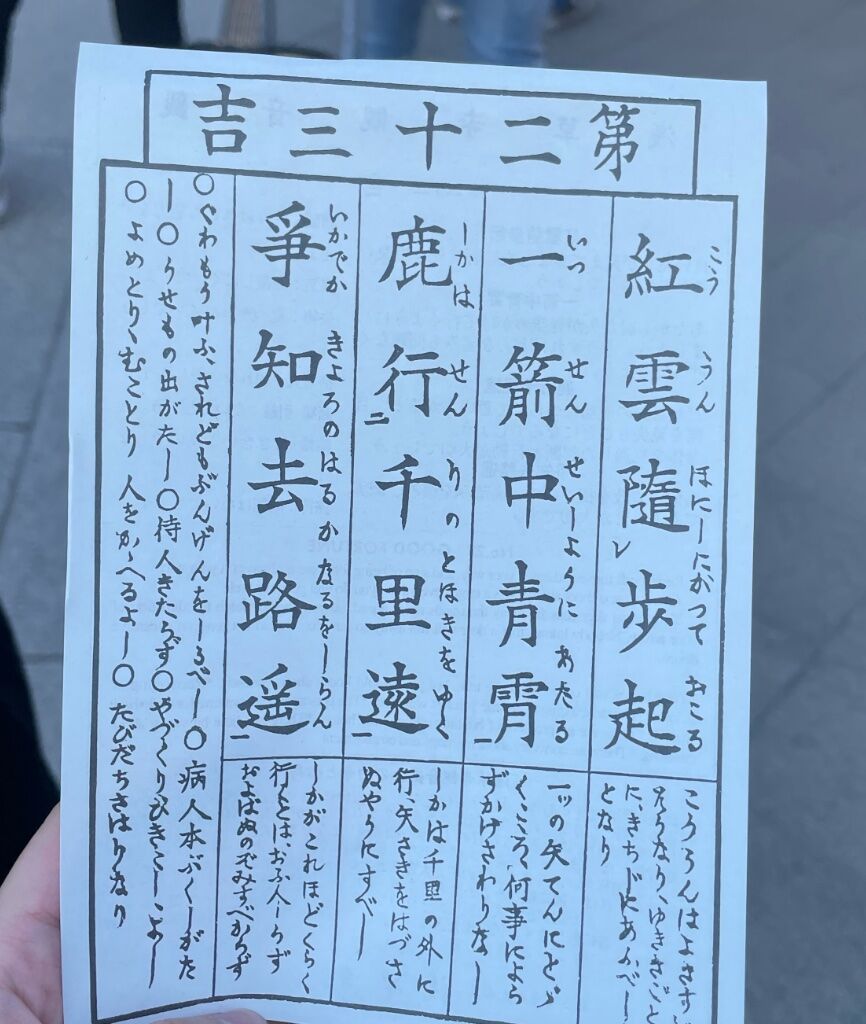 第二十三吉
紅雲隨歩起
こううんほにしたがつておこる
こううんはよさすが
たうなり、ゆきさきごと
に、きちじにあふべし
となり
一箭中青霄
いつせんせいしようにあたる
一ッの矢てんにとゞ
くこゝろ、何事によら
ずかけさわりなし
鹿行千里遠
しかはせんりのとほきをゆく
しかは千里の外に
行、矢さきをはづさ
ぬやうにすべし
爭知去路遥
いかでかきよろのはるかなるをしらん
しかがこれほどくらく
行とは、おふ人しらず
およばぬのぞみすべからず
○ぐわもう叶ふ、されどもぶんげんをしるべし○病人本ぶくしがた
し○うせもの出がたし○待人きたらず○やづくりひきこしよし
○よめとりむことり人をかゝへるよし○たびだちさはりなり